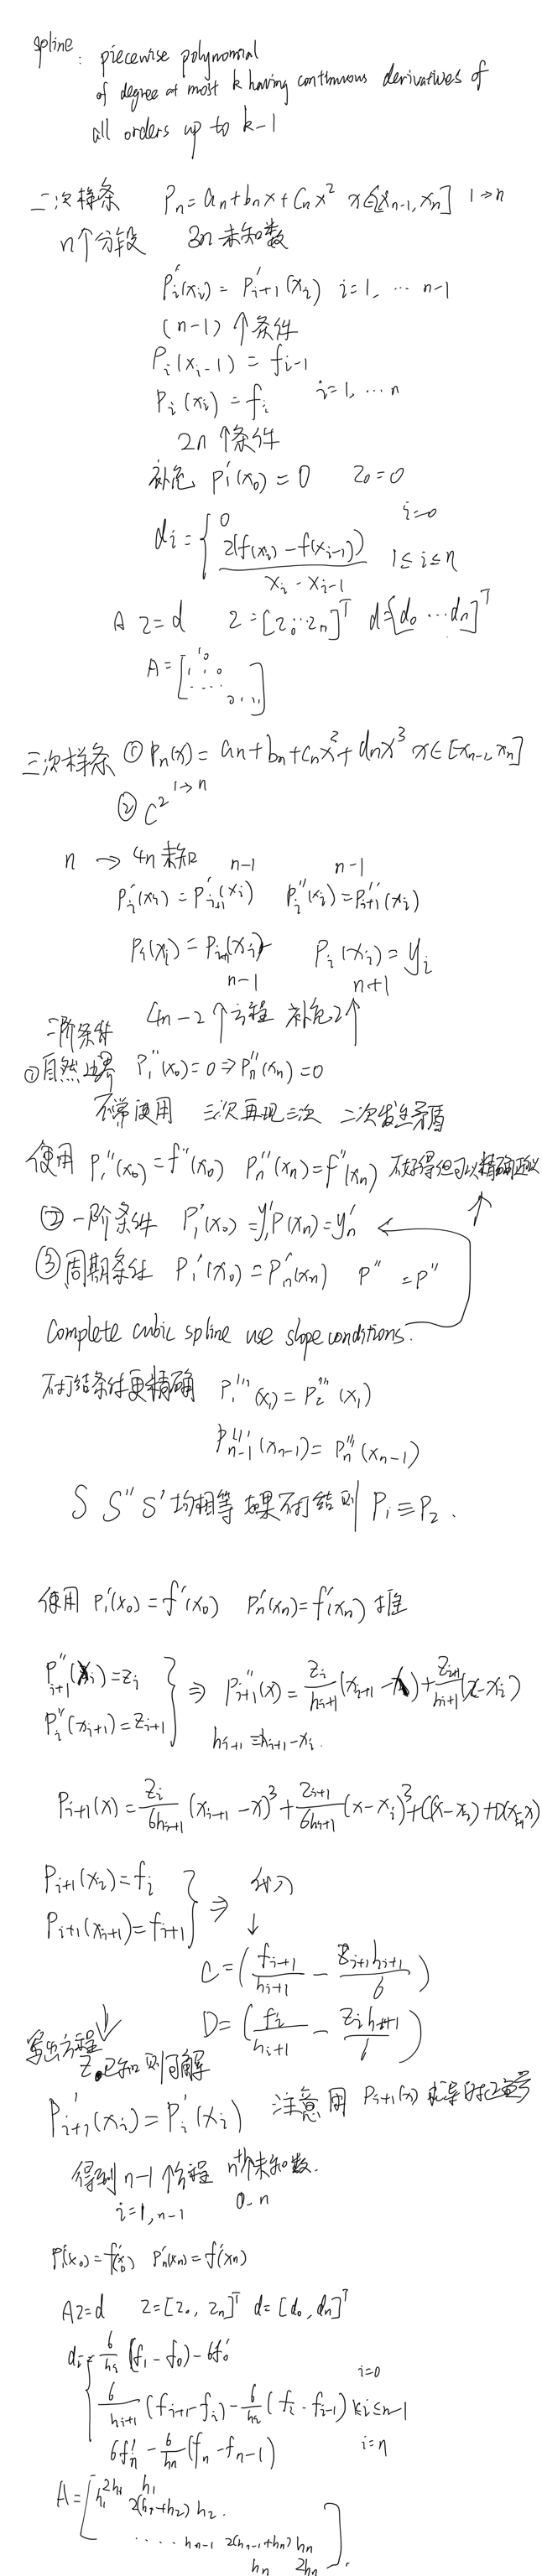 spline: piecewise polynomial
of degree at most k having continuous derivatives of
all orders up to k-1
二次样条 Pn = an+bnx+Cnx² x∈[xn-1, xn] 1→n
n个分段 3n 未知数
Pi'(xi) = P'i+1(xi) i=1, ⋯ n-1
(n-1) 个条件
Pi(xi-1) = fi-1
Pi(xi) = fi i=1, ⋯ n
2n 个条件
补充 P1'(x0) = 0 z0=0
di = { 0 i=0
2(f(xi) - f(xi-1)) / xi - xi-1 1≤i≤n
A z = d z = [z0⋯zn]ᵀ d=[d0 ⋯dn]ᵀ
A = [ ]
三次样条 ① Pn(x) = an+bn+cnx²+dnx³ x∈[xn-1, xn]
② C² 1→n
n → 4n 未知 n-1 n-1
Pi'(xi) = P'i+1(xi) Pi''(xi) = P''i+1(xi)
Pi(xi) = Pi+1(xi) Pi(xi) = yi
n-1 n+1
4n-2个方程 补充2个
二阶条件
①自然边界 P1''(x0)=0 ⇒ Pn''(xn)=0
不常使用 三次再现三次 二次发生矛盾
使用 P1''(x0) = f''(x0) Pn''(xn) = f''(xn) 不好得但可以精确
② 一阶条件 P1'(x0) = y1' P(xn) = yn'
③ 周期条件 P1'(x0) = Pn'(xn) P'' = P''
Complete cubic spline use slope conditions.
不打结条件更精确 P1'''(x1) = P2'''(x1)
P'''n-1(xn-1) = Pn'''(xn-1)
S S'' S' 均相等 如果不打结则 P1≡P2.
使用 P1'(x0) = f'(x0) Pn'(xn) = f'(xn) 推
P''i+1(xi) = zi
Pi''(xi+1) = zi+1 } ⇒ P''i+1(x) = zi/hi+1 (xi+1 - x) + zi+1/hi+1 (x-xi)
hi+1 = xi+1 - xi.
Pi+1(x) = zi/6hi+1 (xi+1 - x)³ + zi+1/6hi+1 (x-xi)³ + C(x-xi) + D(xi+1-x)
Pi+1(xi) = fi
Pi+1(xi+1) = fi+1 } ⇒ 代入
↓
C = (fi+1/hi+1 - zi+1hi+1/6)
D = (fi/hi+1 - zihi+1/6)
写出方程
z0已知则可解
P'i+1(xi) = Pi'(xi) 注意用 Pi+1(x) 求导时正负号
得到 n-1个方程 n+1个未知数.
i=1, n-1 0-n
P'(x0) = f'(x0) Pn'(xn) = f'(xn)
Az=d z = [z0, zn]ᵀ d=[d0, dn]ᵀ
di = { 6/hi (f1 - f0) - 6f0' i=0
6/hi+1 (fi+1 - fi) - 6/hi (fi - fi-1) 1≤i≤n-1
6fn' - 6/hn (fn - fn-1) i=n
A = [ 2h1 h1
h1 2(h1+h2) h2.
⋯⋯ hn-1 2(hn-1+hn) hn
hn 2hn ].